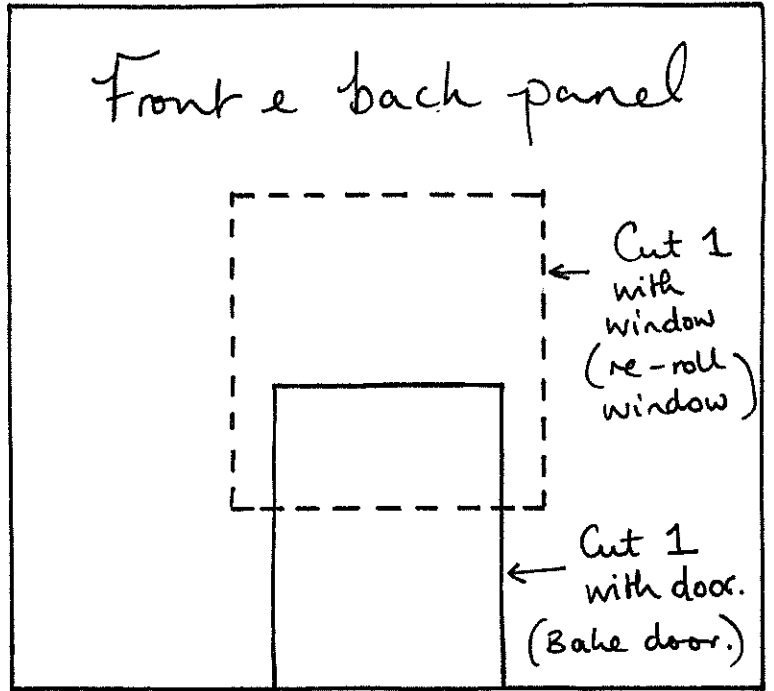 Front & back panel
Cut 1
with
window
(re-roll
window)
Cut 1
with door.
(Bake door.)